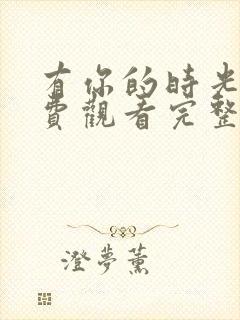 有你的時光
費觀看完整
澄夢薰